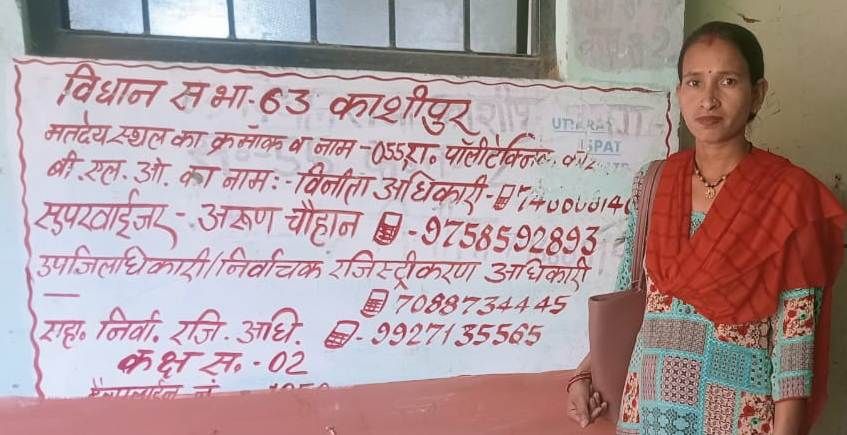 विधान सभा-63 काशीपुर
मतदेय स्थल का क्रमांक व नाम-055रा. पॉलीटेक्निक
बी.एल.ओ. का नाम:- विनीता अधिकारी-
सुपरवाईजर - अरूण चौहान -9758592893
उपजिलाधिकारी/निर्वाचक रजिस्ट्रीकरण अधिकारी
— 7088734445
सह. निर्वा. रजि. अधि. -9927135565
कक्ष स.-02
हैल्पलाईन नं.